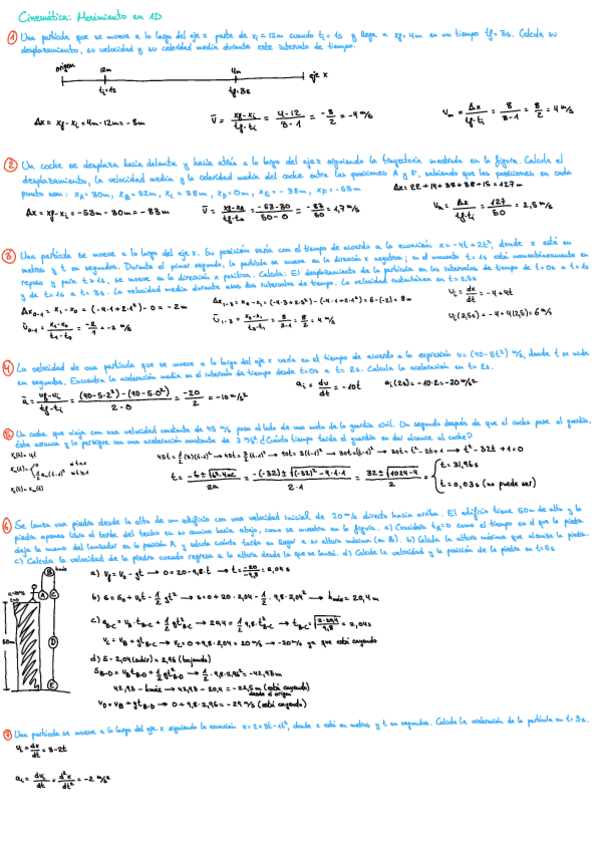 Cinemática: Movimiento en 1D
① Una partícula que se mueve a lo largo del eje x parte de xi = 12m cuando ti = 1s y llega a xf = 4m en un tiempo tf = 3s. Calcula su
desplazamiento, su velocidad y su celeridad media durante este intervalo de tiempo.
origen 12m 4m eje x
ti=1s tf=3s
Δx = xf - xi = 4m - 12m = -8m
v̅ = xf-xi / tf-ti = 4-12 / 3-1 = -8/2 = -4 m/s
vm = Δx / tf-ti = 8 / 3-1 = 8/2 = 4 m/s
② Un coche se desplaza hacia delante y hacia atrás a lo largo del eje x siguiendo la trayectoria mostrada en la figura. Calcula el
desplazamiento, la velocidad media y la celeridad media del coche entre las posiciones A y F, sabiendo que las posiciones en cada
punto son: xA = 30m, xB = 52m, xC = 38m, xD = 0m, xE = -38m, xF = -53m
Δx = 22+14+38+38+15 = 127m
Δx = xf - xi = -53m - 30m = -83m
③ Una partícula se mueve a lo largo del eje x. Su posición varía con el tiempo de acuerdo a la ecuación x = -4t + 2t², donde x está en
metros y t en segundos. Durante el primer segundo, la partícula se mueve en la dirección x negativa; en el momento t=1s está momentáneamente en
reposo y para t>1s, se mueve en la dirección x positiva. Calcula: El desplazamiento de la partícula en los intervalos de tiempo de t=0s a t=1s
y de t=1s a t=3s. La velocidad media durante esos dos intervalos de tiempo. La velocidad instantánea en t=2,5s
Δx0-1 = x1 - x0 = (-4·1+2·1²) - 0 = -2m
Δx1-3 = x3 - x1 = (-4·3+2·3²) - (-4·1+2·1²) = 6-(-2) = 8m
vi = dx/dt = -4+4t
vi(2,5s) = -4+4(2,5) = 6 m/s
④ La velocidad de una partícula que se mueve a lo largo del eje x varía en el tiempo de acuerdo a la expresión v = (40-5t²) m/s, donde t se mide
en segundos. Encuentra la aceleración media en el intervalo de tiempo desde t=0s a t=2s. Calcula la aceleración en t=2s.
a̅ = vf-vi / tf-ti = (40-5·2²)-(40-5·0²) / 2-0 = -20/2 = -10 m/s²
ai = dv/dt = -10t
ai(2s) = -10·2 = -20 m/s²
⑤ Un coche que viaja con una velocidad constante de 45 m/s pasa al lado de una moto de la guardia civil. Un segundo después de que el coche pase al guardia,
éste arranca y lo persigue con una aceleración constante de 3 m/s². ¿Cuánto tiempo tarda el guardia en dar alcance al coche?
t = 31,96s
t = 0,03s (no puede ser)
⑥ Se lanza una piedra desde lo alto de un edificio con una velocidad inicial de 20 m/s directo hacia arriba. El edificio tiene 50m de alto y la
piedra apenas libra el borde del techo en su camino hacia abajo, como se muestra en la figura. a) Considera tA=0 como el tiempo en el que la piedra
deja la mano del lanzador en la posición A, y calcula cuánto tarda en llegar a su altura máxima (en B). b) Calcula la altura máxima que alcanza la piedra.
c) Calcula la velocidad de la piedra cuando regresa a la altura desde la que se lanzó. d) Calcula la velocidad y la posición de la piedra en t=5s
a) vf = v0 - gt → 0 = 20-9,8·t → t = -20/-9,8 = 2,04s
hmáx = 20,4m
→ -20 m/s ya que está cayendo
d) 5 - 2,04 (subir) = 2,96 (bajando)
(está cayendo)
desde el origen
v0 = vB + gtB-D → 0+9,8·2,96 = -29 m/s (está cayendo)
⑦ Una partícula se mueve a lo largo del eje x siguiendo la ecuación x = 2+3t-t², donde x está en metros y t en segundos. Calcula la aceleración de la partícula en t=3s.
vi = dx/dt = 3-2t
ai = dvi/dt = d²x/dt² = -2 m/s²